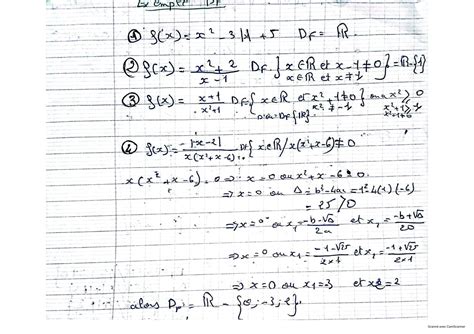 Exemples Df
① f(x) = x² - 3|4 + 5 Df = ℝ.
② f(x) = x² + 2 / x - 1 Df { x ∈ ℝ et x - 1 ≠ 0 } = ℝ - {1}
x ∈ ℝ et x ≠ 1
③ f(x) = x + 1 / x² + 1 Df = { x ∈ ℝ et x² + 1 ≠ 0 } on a x² ⩾ 0
x² ≠ -1 x² + 1 ⩾ 1
Df {ℝ} x² + 1 ≠ 0
④ f(x) = -|x - 2| / x(x² + x - 6) Df { x ∈ ℝ / x(x² + x - 6) ≠ 0
x(x² + x - 6) = 0 ⟺ x = 0 ou x² + x - 6 = 0.
⟹ x = 0 ou Δ = b² - 4ac = 1² 4(1)(-6)
= 25 > 0
⟹ x = 0 ou x₁ = -b - √Δ / 2a et x₂ = -b + √Δ / 2a
⟹ x = 0 ou x₁ = -1 - √25 / 2×1 et x₂ = -1 + √25 / 2×1
⟹ x = 0 ou x₁ = 3 et x₂ = 2
alors Df = ℝ - {0, -3, 2}.
Scanné avec CamScanner